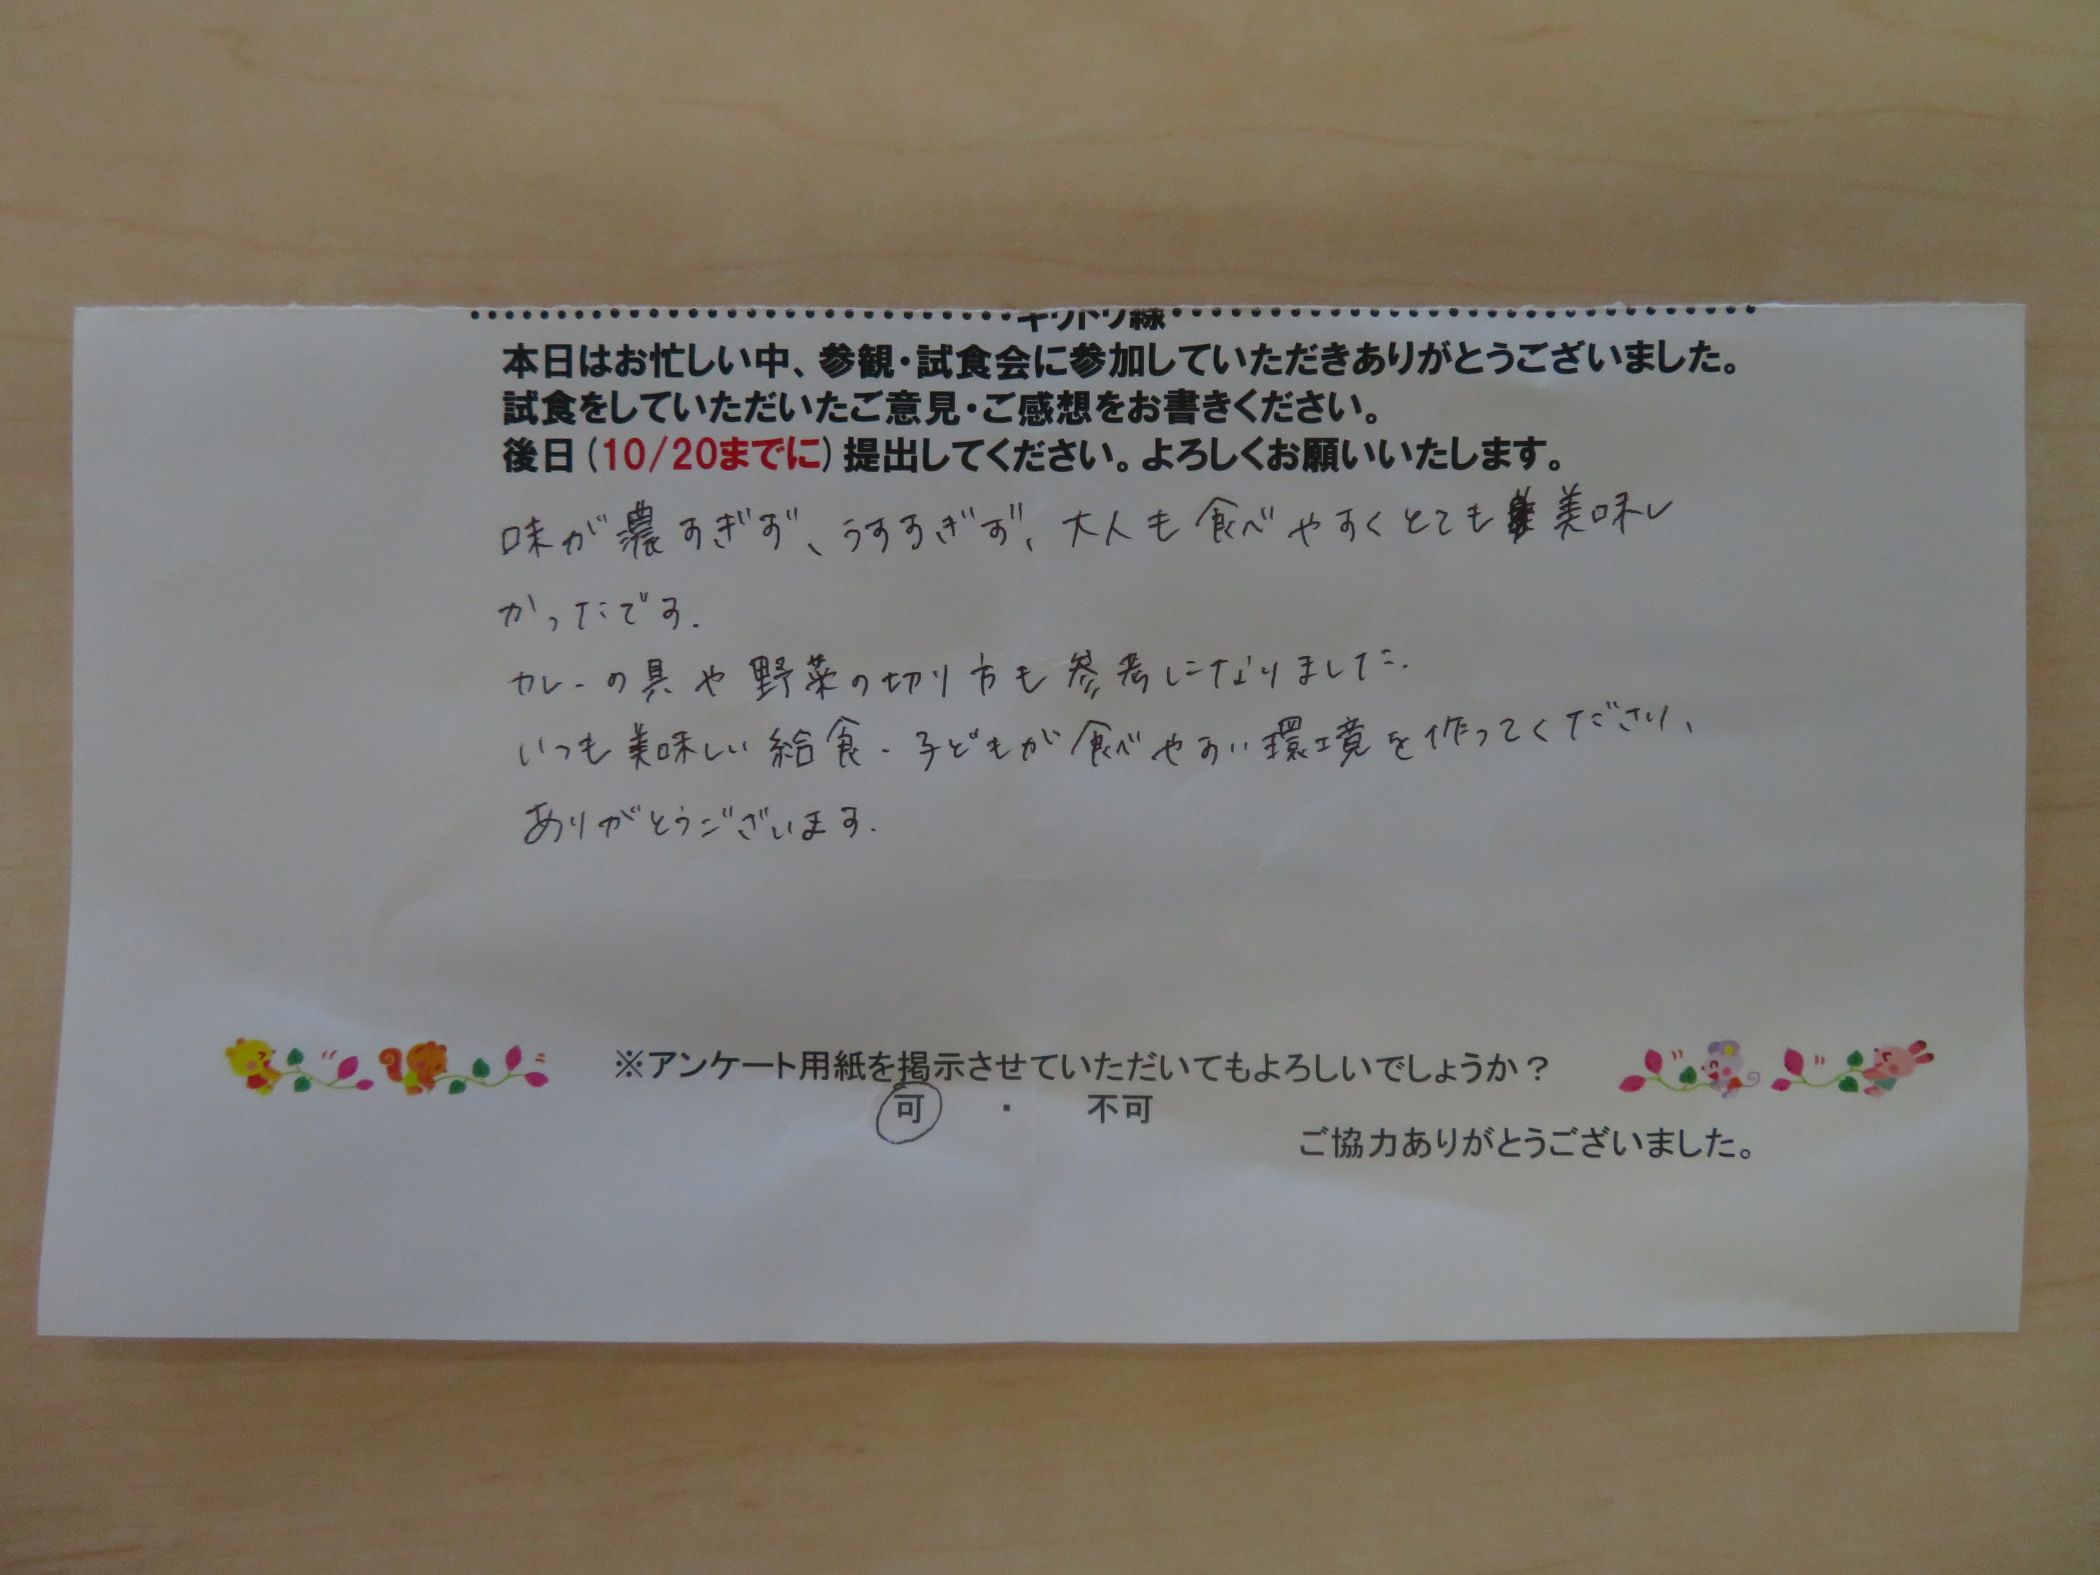 キリトリ線
本日はお忙しい中、参観・試食会に参加していただきありがとうございました。
試食をしていただいたご意見・ご感想をお書きください。
後日(10/20までに)提出してください。よろしくお願いいたします。
味が濃すぎず、うすすぎず、大人も食べやすくとても美味し
かったです.
カレーの具や野菜の切り方も参考になりました.
いつも美味しい給食・子どもが食べやすい環境を作ってくださり、
ありがとうございます.
※アンケート用紙を掲示させていただいてもよろしいでしょうか？
可 ・ 不可
ご協力ありがとうございました。